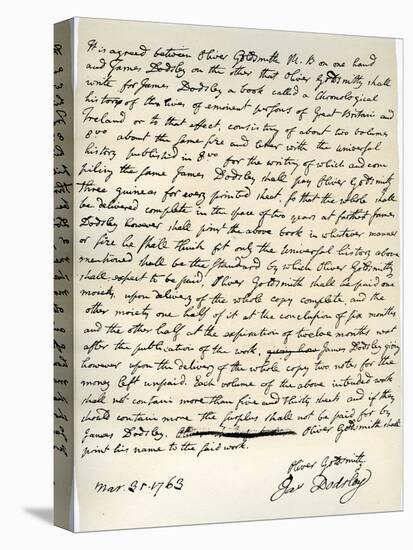 It is agreed between Oliver Goldsmith M. B on one hand
and James Dodsley on the other that Oliver Goldsmith shall
write for James Dodsley a book called a Chronological
history of the lives of eminent persons of Great Britain and
Ireland or to that effect, consisting of about two volumes
8vo about the same size and letter with the universal
history published in 8vo for the writing of which and com
piling the same James Dodsley shall pay Oliver Goldsmith
three guineas for every printed sheet, so that the whole shall
be delivered complete in the space of two years at farthest James
Dodsley however shall print the above book in whatever manner
or size he shall think fit only the Universal history above
mentioned shall be the standard by which Oliver Goldsmith
shall expect to be paid. Oliver Goldsmith shall be paid one
moiety upon delivery of the whole copy complete, and the
other moiety one half of it at the conclusion of six months
and the other half at the expiration of twelve months next
after the publication of the work, James Dodsley giving
however upon the delivery of the whole copy two notes for the
money left unpaid. Each volume of the above intended work
shall not contain more than five and thirty sheets and if they
should contain more the surplus shall not be paid for by
James Dodsley. Oliver Goldsmith shall
print his name to the said work.
Oliver Goldsmith
Mar. 31. 1763
Jas Dodsley